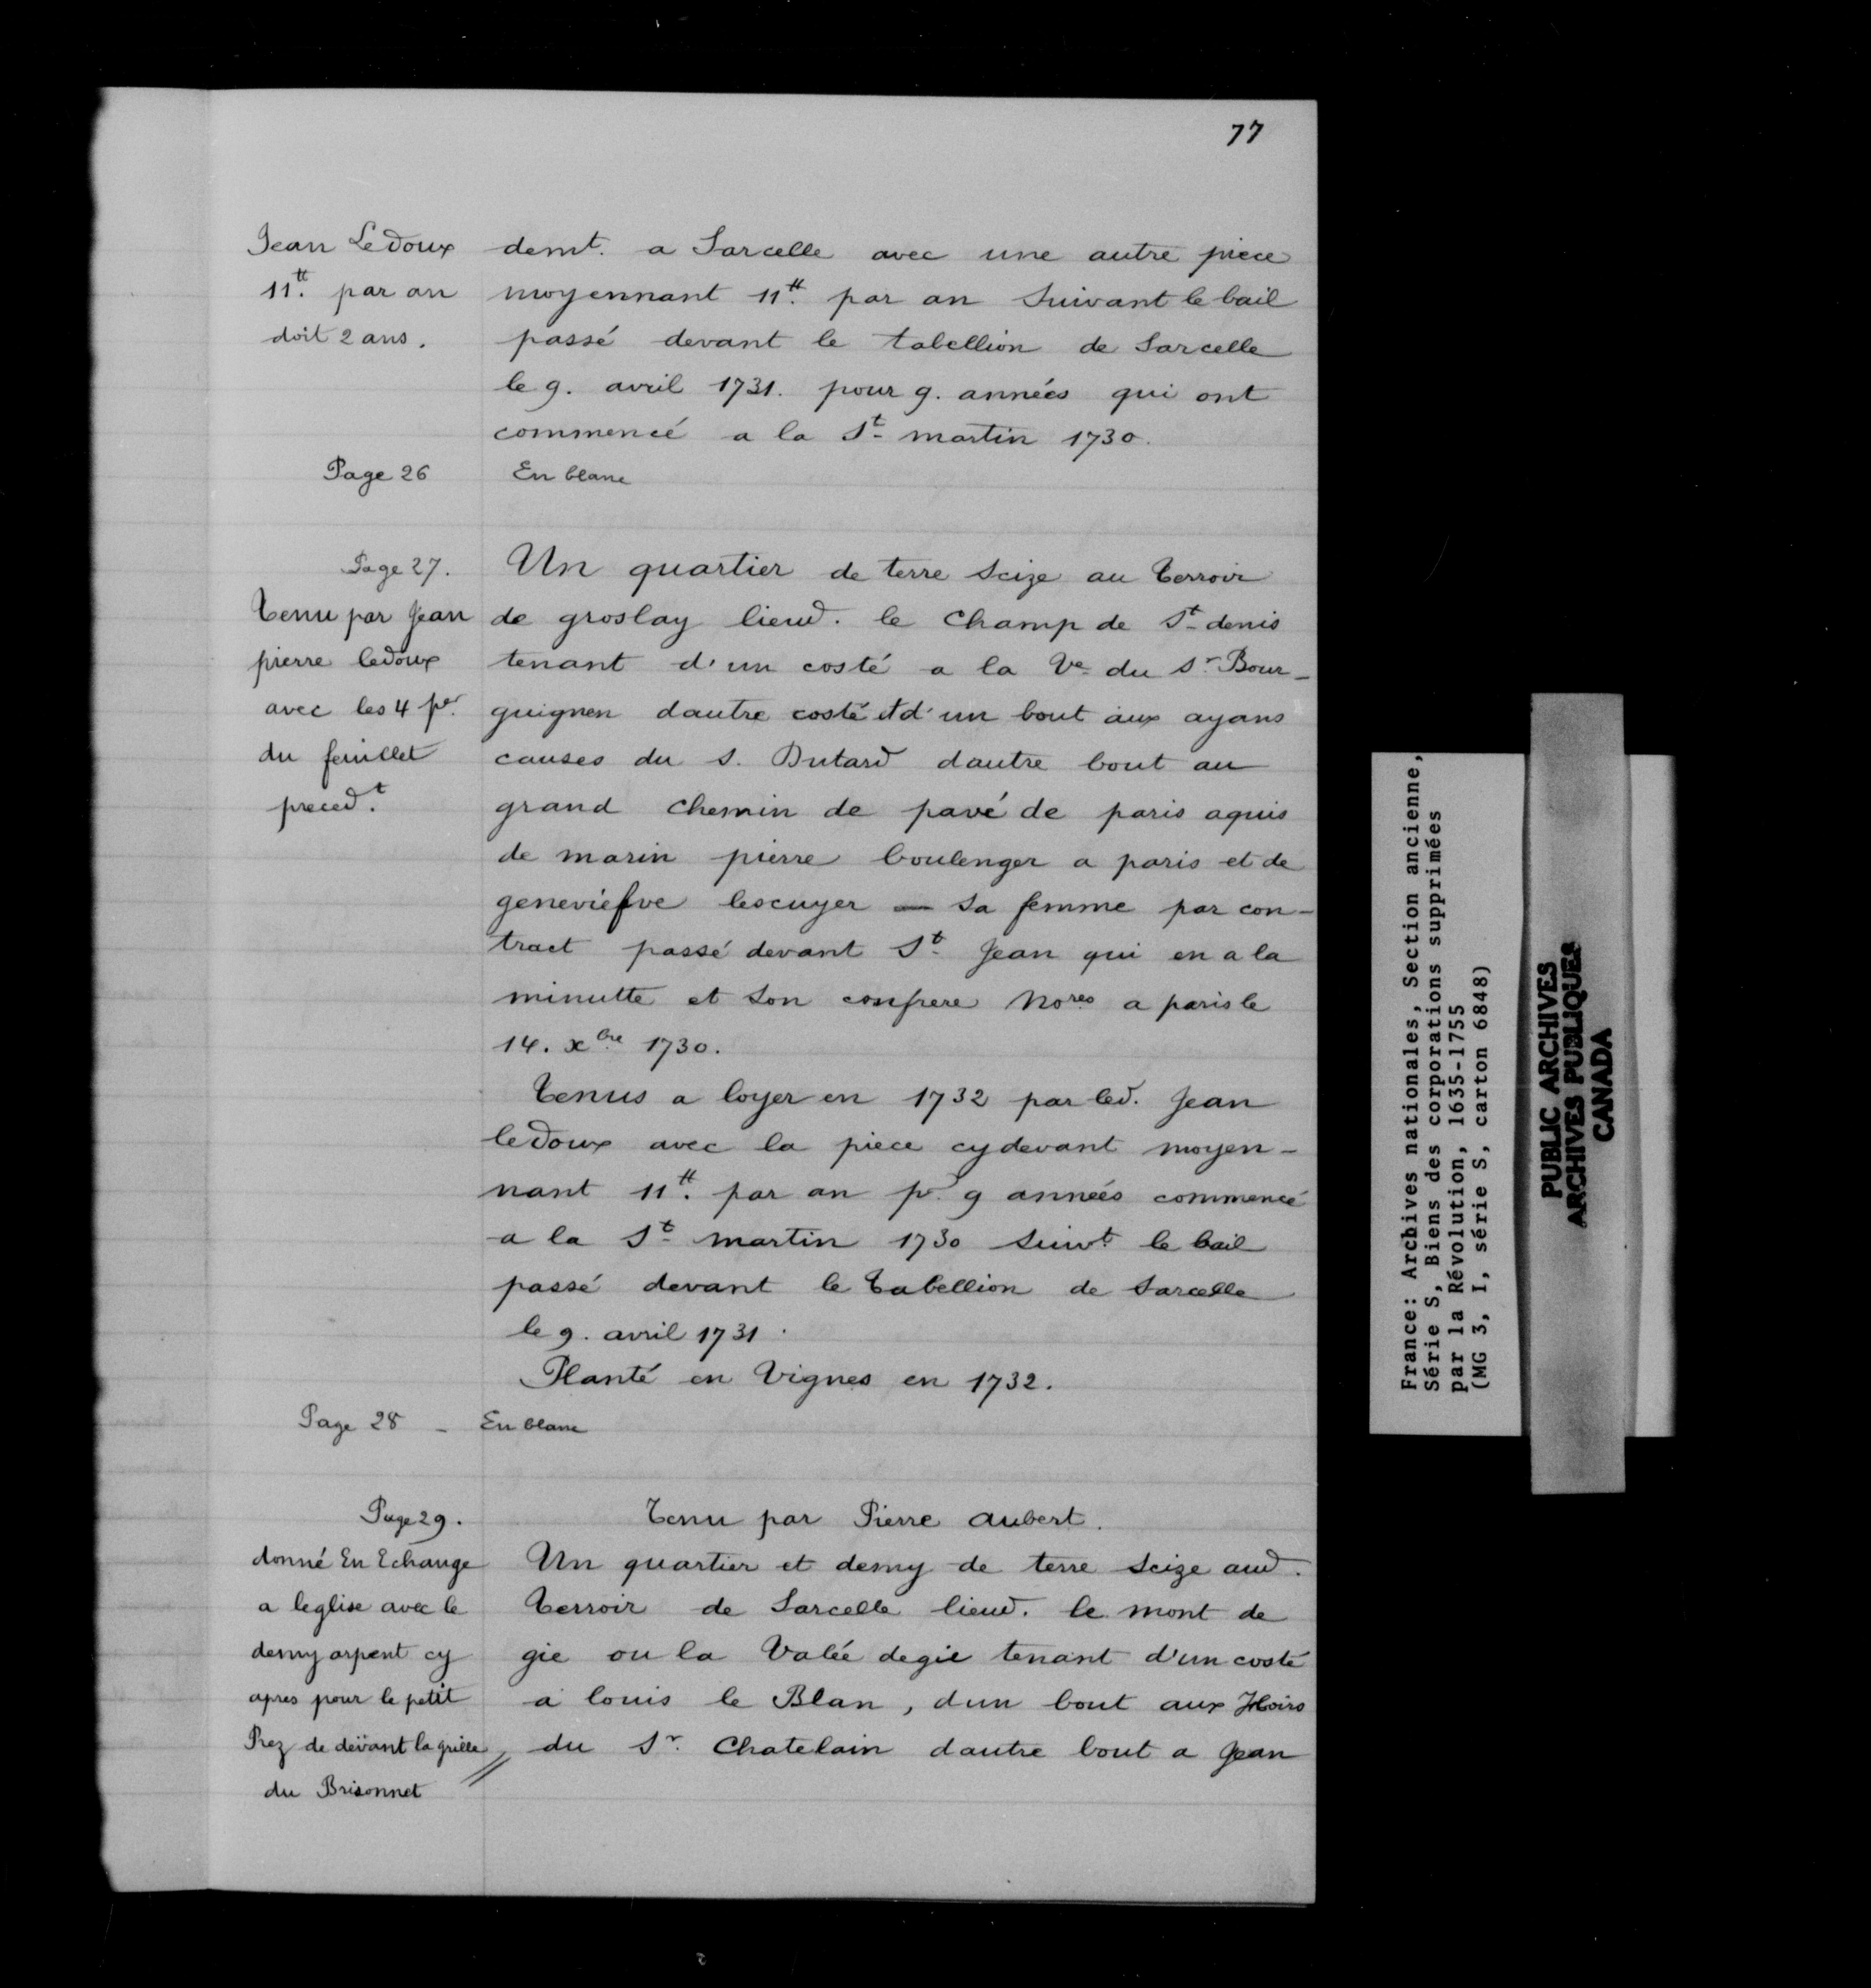 77
Jean Ledoux
11tt. par an
doit 2 ans.
demt. a Sarcelle avec une autre piece
moyennant 11tt. par an suivant le bail
passé devant le tabellion de Sarcelle
le 9. avril 1731. pour 9. années qui ont
commencé a la St martin 1730.
Page 26
En blanc
Page 27.
Tenu par Jean
pierre ledoux
avec les 4 per.
du feuillet
preced.t
Un quartier de terre seize au Terroir
de groslay lieud. le Champ de St denis
tenant d'un costé a la Ve du Sr. Bour-
guignen dautre costé et d'un bout aux ayans
causes du S. Dutard dautre bout au
grand chemin de pavé de paris aquis
de marin pierre boulenger a paris et de
geneviefve lescuyer — sa femme par con-
tract passé devant St. Jean qui en a la
minutte et son confrere Nores a paris le
14. xbre 1730.
Tenus a loyer en 1732 par led. Jean
ledoux avec la piece cydevant moyen-
nant 11tt. par an pr. 9 années commencé
a la St martin 1730 suivt. le bail
passé devant le Tabellion de Sarcelle
le 9. avril 1731.
Planté en Vignes en 1732.
Page 28 - En blanc
Page 29.
donné En Echange
a leglise avec le
demy arpent cy
apres pour le petit
Prez de devant la grille
du Brisonnet
Tenu par Pierre aubert.
Un quartier et demy de terre seize aud.
Terroir de Sarcelle lieud. le mont de
gie ou la Valée de gie tenant d'un costé
a louis le Blan, dun bout aux Hoirs
du Sr. Chatelain dautre bout a Jean
France: Archives nationales, Section ancienne,
Série S, Biens des corporations supprimées
par la Révolution, 1635-1755
(MG 3, I, série S, carton 6848)
PUBLIC ARCHIVES
ARCHIVES PUBLIQUES
CANADA